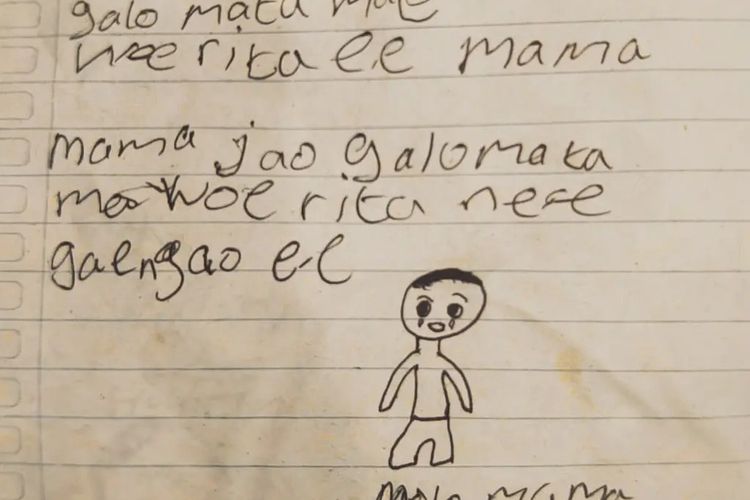 galo mata mate
woe rita e.e mama
mama jao galomata
ma woe rita nese
gaengao e-e
mama